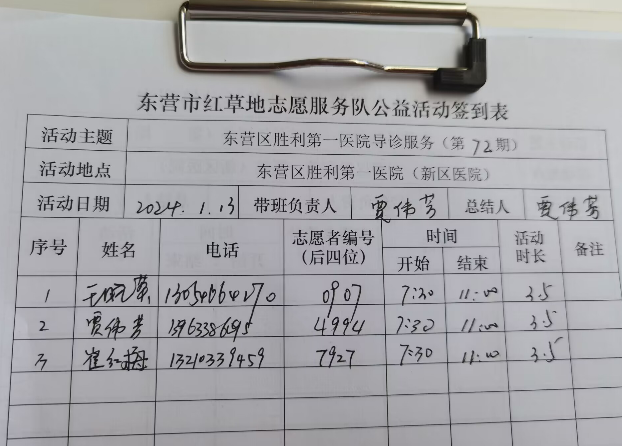 东营市红草地志愿服务队公益活动签到表
活动主题 东营区胜利第一医院导诊服务(第72期)
活动地点 东营区胜利第一医院(新区医院)
活动日期 2024.1.13 带班负责人 贾伟芳 总结人 贾伟芳
序号 姓名 电话 志愿者编号(后四位) 时间 开始 结束 活动时长 备注
1 0907 7:30 11:00 3.5
2 贾伟芳 4994 7:30 11:00 3.5
3 崔红梅 13210339459 7927 7:30 11:00 3.5